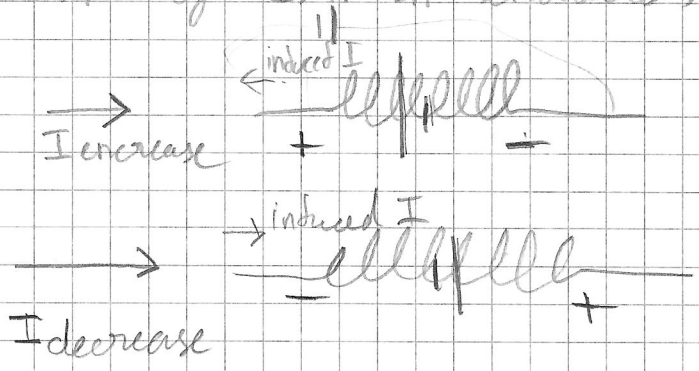 induced I
I encrease
+ −
induced I
− +
I decrease